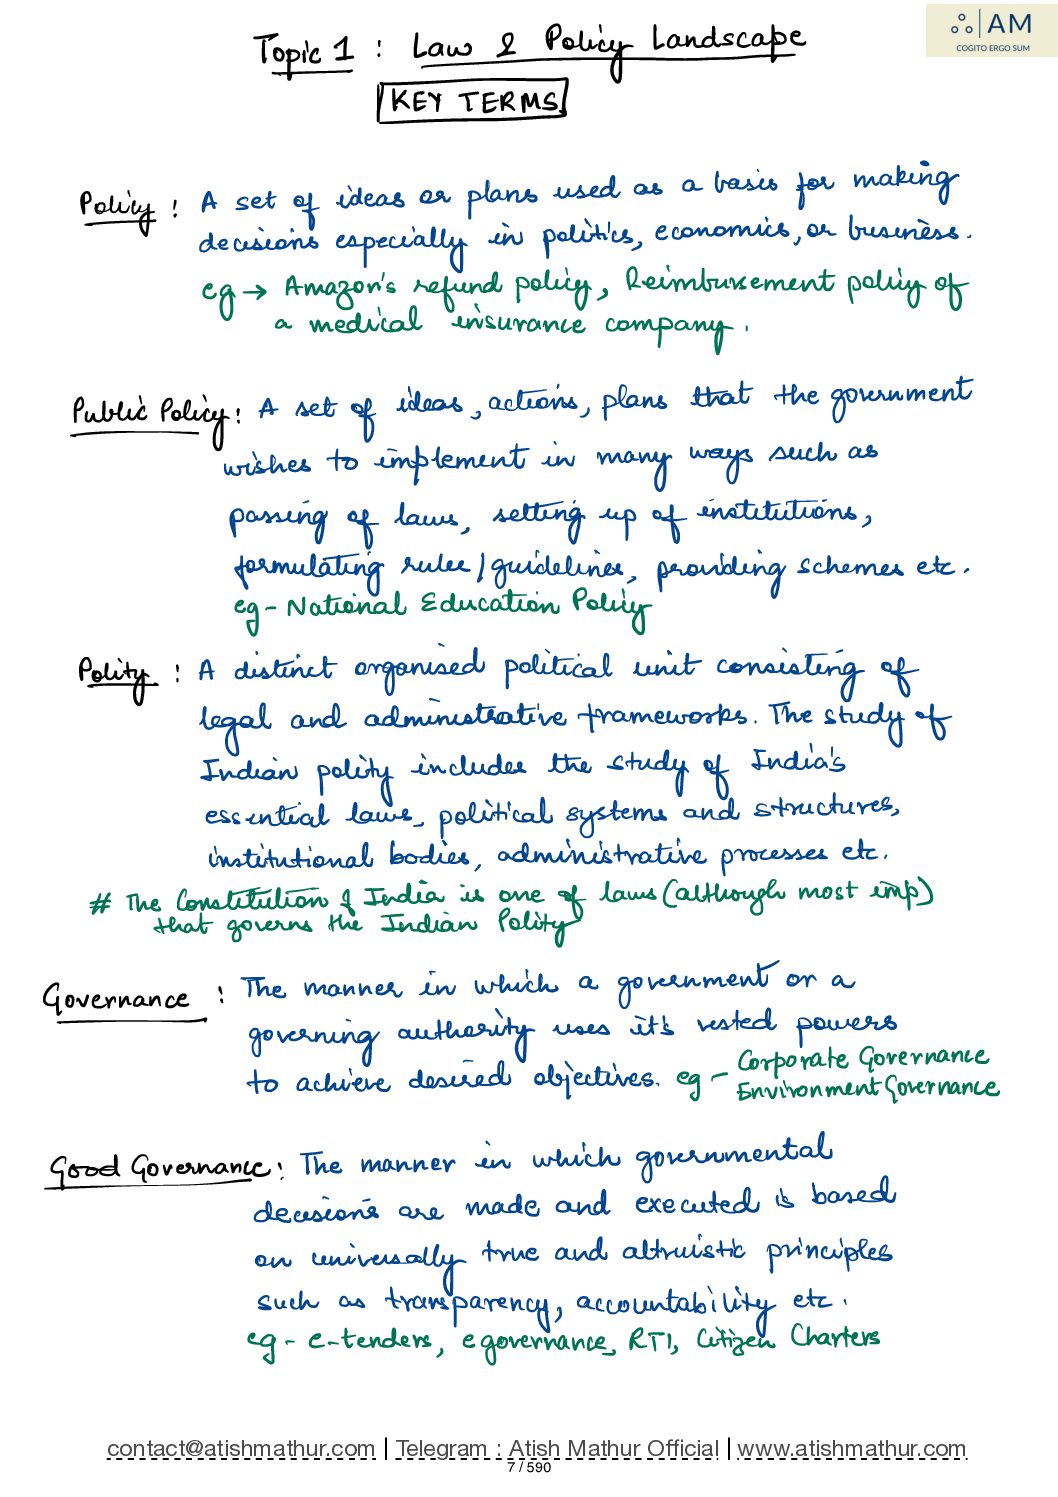 AM
COGITO ERGO SUM
Topic 1 : Law & Policy Landscape
KEY TERMS
Policy : A set of ideas or plans used as a basis for making
decisions especially in politics, economics, or business.
eg → Amazon's refund policy, Reimbursement policy of
a medical insurance company.
Public Policy : A set of ideas, actions, plans that the government
wishes to implement in many ways such as
passing of laws, setting up of institutions,
formulating rules/guidelines, providing schemes etc.
eg - National Education Policy
Polity : A distinct organised political unit consisting of
legal and administrative frameworks. The study of
Indian polity includes the study of India's
essential laws, political systems and structures,
institutional bodies, administrative processes etc.
# The Constitution of India is one of laws (although most imp)
that governs the Indian Polity
Governance : The manner in which a government or a
governing authority uses it's vested powers
to achieve desired objectives. eg - Corporate Governance
Environment Governance
Good Governance : The manner in which governmental
decisions are made and executed is based
on universally true and altruistic principles
such as transparency, accountability etc.
eg - e-tenders, egovernance, RTI, Citizen Charters
contact@atishmathur.com | Telegram : Atish Mathur Official | www.atishmathur.com
7 / 590